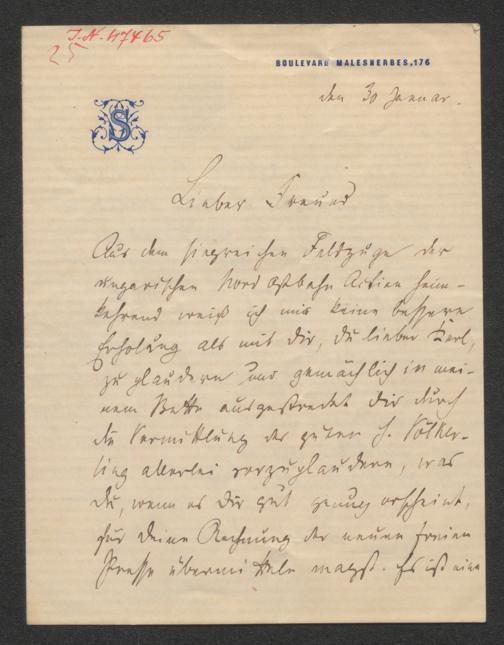 J.N. 47465
25
BOULEVARD MALESHERBES, 176
den 30 Januar.
S
Lieber Freund
Aus dem siegreichen Feldzuge der
ungarischen Nord Ostbahn Actien heim-
kehrend weiß ich mir keine bessere
Erholung als mit dir, du lieber Kerl,
zu plaudern und gemächlich in mei-
nem Bette ausgestreckt dir durch
die Vermittlung des guten H. Völker-
ling allerlei vorzuplaudern, was
du, wenn es dir gut genug erscheint,
für deine Rechnung der neuen freien
Presse übermitteln magst. Es ist eine